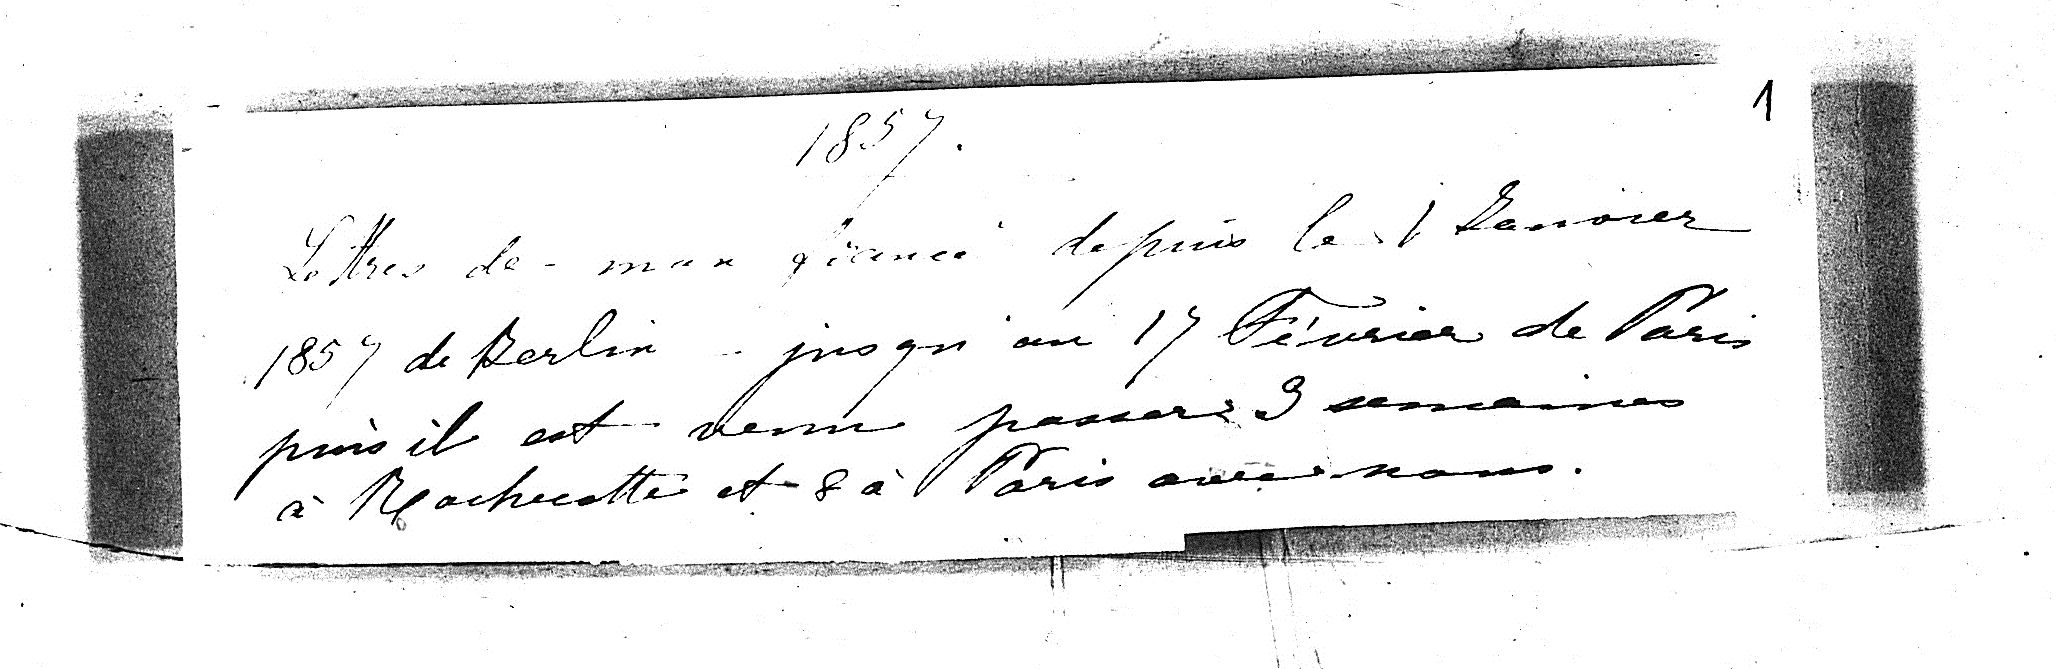 1
1857.
Lettres de - mon fiancé depuis le 1 Janvier
1857 de Berlin - jusqu'au 17 Février de Paris
puis il est venu passer 3 semaines
à Rochecotte et 8 à Paris avec nous.